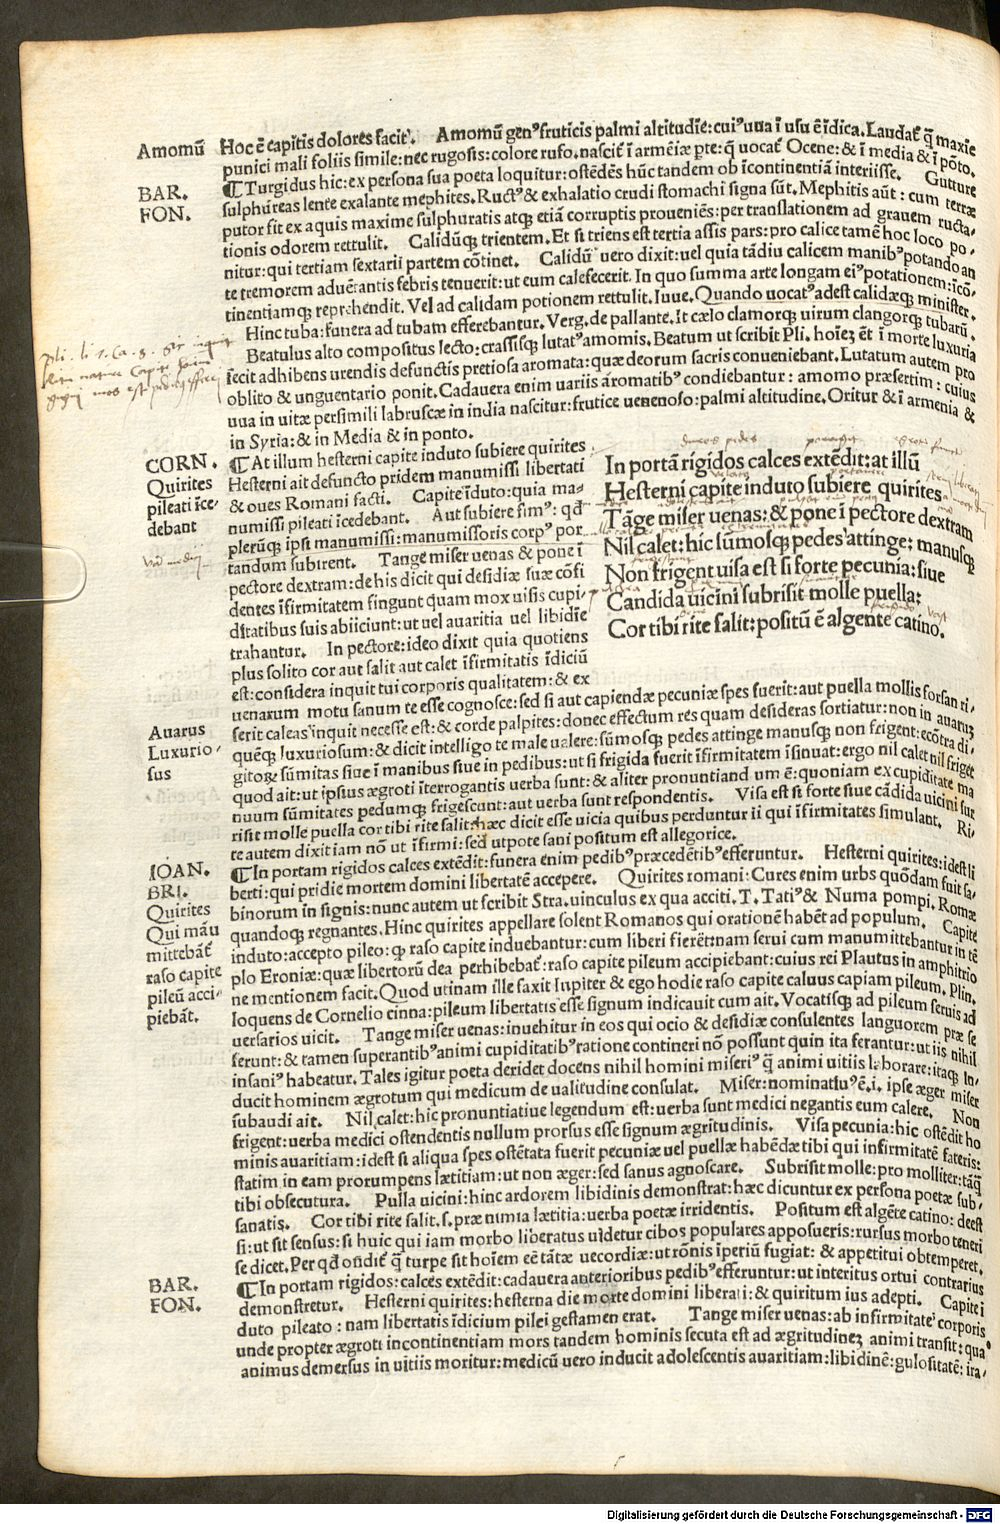 Amomū
Hoc ē capitis dolores facit⁊. Amomū genꝰ fruticis palmi altitudīe: cuiꝰ uua ī usu ē īdica. Laudaƭ q̄ maxīe
punici mali foliis simile: nec rugosis: colore rufo. nasciƭ ī armēiæ ꝑte: q̄ uocaƭ Ocene: & ī media & ī pōto.
BAR.
FON.
¶ Turgidus hic: ex persona sua poeta loquitur: ostēdēs hūc tandem ob īcontinentiā interiisse. Gutture
sulphureas lente exalante mephites. Ructꝰ & exhalatio crudi stomachi signa sūt. Mephitis aūt: cum terræ
putor fit ex aquis maxime sulphuratis atqꝫ etiā corruptis proueniēs: per translationem ad grauem ructa-
tionis odorem rettulit. Calidūqꝫ trientem. Et si triens est tertia assis pars: pro calice tamē hoc loco po-
nitur: qui tertiam sextarii partem cōtinet. Calidū uero dixit: uel quia tādiu calicem manibꝰ potando an
te tremorem aduētantis febris tenuerit: ut eum calefecerit. In quo summa arte longam eiꝰ potationem: īcō-
tinentiamqꝫ reprehendit. Vel ad calidam potionem rettulit. Iuue. Quando uocatꝰ adest calidæqꝫ minister.
Hinc tuba: funera ad tubam efferebantur. Verg. de pallante. It cælo clamorqꝫ uirum clangorqꝫ tubarū.
Beatulus alto compositus lecto: crassisqꝫ lutatꝰ amomis. Beatum ut scribit Pli. hoīez ēt ī morte luxuria
iecit adhibens urendis defunctis pretiosa aromata: quæ deorum sacris conueniebant. Lutatum autem pro
oblito & unguentario ponit. Cadauera enim uariis aromatibꝰ condiebantur: amomo præsertim: cuius
uua in uitæ persimili labruscæ in india nascitur: frutice uenenoso: palmi altitudine. Oritur & ī armenia &
in Syria: & in Media & in ponto.
CORN.
Quirites
pileati īce-
debant
¶ At illum hesterni capite induto subiere quirites
Hesterni ait defuncto pridem manumissi libertati
& oues Romani facti. Capite īduto: quia ma-
numissi pileati īcedebant. Aut subiere fimꝰ: qđ
plerūqꝫ ipsi manumissi: manumissoris corpꝰ por
tandum subirent. Tange miser uenas & pone ī
pectore dextram: de his dicit qui desidiæ suæ cōfi
dentes īfirmitatem fingunt quam mox uisis cupi-
ditatibus suis abiiciunt: ut uel auaritia uel libidīe
trahantur. In pectore: ideo dixit quia quotiens
plus solito cor aut salit aut calet īfirmitatis īdiciū
est: considera inquit tui corporis qualitatem: & ex
In portā rigidos calces extēdit: at illū
Hesterni capite induto subiere quirites
Tāge miser uenas: & pone ī pectore dextram
Nil calet: hic sūmosqꝫ pedes attinge: manusqꝫ
Non frigent uisa est si forte pecunia: siue
Candida uicini subrisit molle puella:
Cor tibi rite salit: positū ē algente catino.
uenarum motu sanum te esse cognosce: sed si aut capiendæ pecuniæ spes fuerit: aut puella mollis forsan ri-
Auarus
Luxurio-
sus
serit caleas inquit necesse est: & corde palpites: donec effectum res quam desideras sortiatur: non in auaruz
quēqꝫ luxuriosum: & dicit intelligo te male ualere: sūmosqꝫ pedes attinge manusqꝫ non frigent: ecōtra di-
gitoꝝ sūmitas siue ī manibus siue in pedibus: ut si frigida fuerit īfirmitatem īsinuat: ergo nil calet nil friget
quod ait: ut ipsius ægroti īterrogantis uerba sunt: & aliter pronuntiand um ē: quoniam ex cupiditate ma
nuum sūmitates pedumqꝫ frigescunt: aut uerba sunt respondentis. Visa est si forte siue cādida uicini sur
risit molle puella cor tibi rite salit: hæc dicit esse uicia quibus perduntur ii qui īfirmitates simulant. Ri-
te autem dixit iam nō ut īfirmi: sed utpote sani positum est allegorice.
IOAN.
BRI.
Quirites
Qui māu
mittebāƭ
raso capite
pileū acci-
piebāt.
¶ In portam rigidos calces extēdit: funera enim pedibꝰ præcedētibꝰ efferuntur. Hesterni quirites: idest li
berti: qui pridie mortem domini libertatē accepere. Quirites romani: Cures enim urbs quōdam fuit sa-
binorum in signis: nunc autem ut scribit Stra. uinculus ex qua acciti. T. Tatiꝰ & Numa pompi. Romæ
quandoqꝫ regnantes. Hinc quirites appellare solent Romanos qui orationē habēt ad populum. Capite
induto: accepto pileo: ꝙ raso capite induebantur: cum liberi fierēt: nam serui cum manumittebantur in tē
plo Eroniæ: quæ libertorū dea perhibebaƭ: raso capite pileum accipiebant: cuius rei Plautus in amphitrio
ne mentionem facit. Quod utinam ille faxit Iupiter & ego hodie raso capite caluus capiam pileum. Plin.
loquens de Cornelio cinna: pileum libertatis esse signum indicauit cum ait. Vocatisqꝫ ad pileum seruis ad
uersarios uicit. Tange miser uenas: inuehitur in eos qui ocio & desidiæ consulentes languorem præ se
ferunt: & tamen superantibꝰ animi cupiditatibꝰ ratione contineri nō possunt quin ita ferantur: ut iis nihil
insaniꝰ habeatur. Tales igitur poeta deridet docens nihil homini miseriꝰ q̄ animi uitiis laborare: itaqꝫ in-
ducit hominem ægrotum qui medicum de ualitudine consulat. Miser: nominatiuꝰ ē. i. ipse æger miser
subaudi ait. Nil calet: hic pronuntiatiue legendum est: uerba sunt medici negantis eum calere. Non
frigent: uerba medici ostendentis nullum prorsus esse signum ægritudinis. Visa pecunia: hic ostēdit ho
minis auaritiam: idest si aliqua spes ostētata fuerit pecuniæ uel puellæ habēdæ tibi qui infirmitatē fateris:
statim in eam prorumpens lætitiam: ut non æger: sed sanus agnoscare. Subrisit molle: pro molliter: tāq̄
tibi obsecutura. Pulla uicini: hinc ardorem libidinis demonstrat: hæc dicuntur ex persona poetæ sub-
sanatis. Cor tibi rite salit. s. præ nimia lætitia: uerba poetæ irridentis. Positum est algēte catino: deest
si: ut sit sensus: si huic qui iam morbo liberatus uidetur cibos populares apposueris: rursus morbo teneri
se dicet. Per qđ ondiƭ q̄ turpe sit hoīem eē tātæ uecordiæ: ut rōnis īperiū fugiat: & appetitui obtemperet.
BAR.
FON.
¶ In portam rigidos: calces extēdit: cadauera anterioribus pedibꝰ efferuntur: ut interitus ortui contrarius
demonstretur. Hesterni quirites: hesterna die morte domini liberati: & quiritum ius adepti. Capite i
duto pileato: nam libertatis īdicium pilei gestamen erat. Tange miser uenas: ab infirmitate corporis
unde propter ægroti incontinentiam mors tandem hominis secuta est ad ægritudinez animi transit: qua
animus demersus in uitiis moritur: medicū uero inducit adolescentis auaritiam: libidinē: gulositatē: ira-
Digitalisierung gefördert durch die Deutsche Forschungsgemeinschaft - DFG